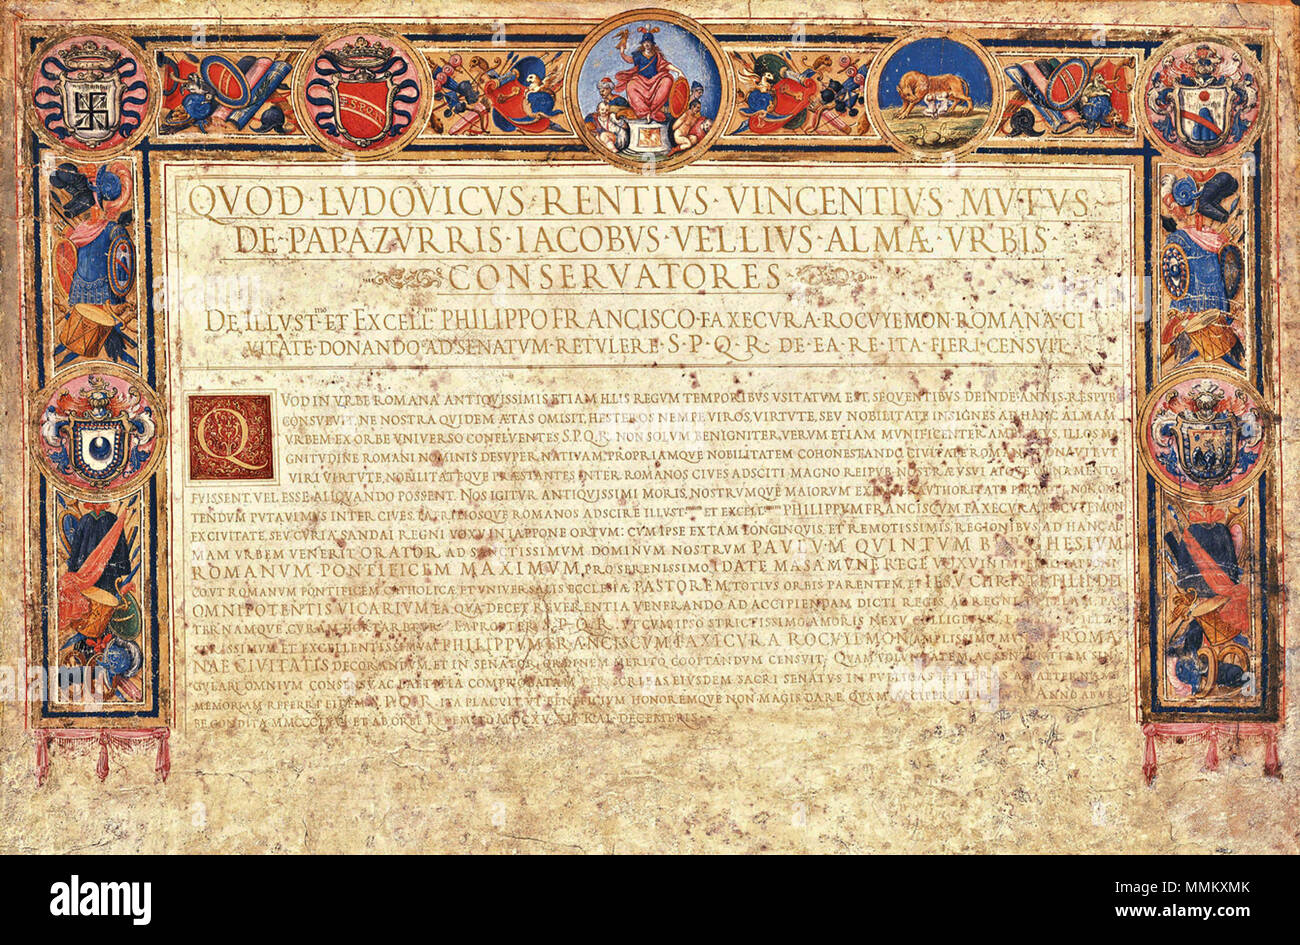 S·P·Q·R
QVOD·LVDOVICVS·RENTIVS·VINCENTIVS MVTVS
DE·PAPAZVRRIS·IACOBVS·VELLIVS·ALMÆ VRBIS
CONSERVATORES
DE ILLVST^mo ET EXCELL^mo PHILIPPO FRANCISCO·FAXECVRA·ROCVYEMON·ROMANA·CI
VITATE·DONANDO·AD SENATVM·RETVLERE·S·P·Q·R·DE·EA·RE·ITA·FIERI·CENSVIT
QVOD IN VRBE ROMANA ANTIQVISSIMIS ETIAM ILLIS REGVM TEMPORIBVS VSITATVM EST, SEQVENTIBVS DEINDE ANNIS RESPVB
CONSVEVIT, NE NOSTRA QVIDEM ÆTAS OMISIT, HESTEROS NEMPE VIROS, VIRTVTE, SEV NOBILITATE INSIGNES AD HANC ALMAM
VRBEM EX ORBE VNIVERSO CONFLVENTES S.P.Q.R. NON SOLVM BENIGNITER, VERVM ETIAM MVNIFICENTER ILLOS M
GNITVDINE ROMANI NOMINIS DESVPER NATIVAM, PROPRIAMQVE NOBILITATEM COHONESTANDO, CIVITATE ROMANA DONAVIT VT
VIRI VIRTVTE, NOBILITATEQVE PRÆSTANTES INTER ROMANOS CIVES ADSCITI MAGNO REIPVB NOSTRÆ VSVI ATQVE ORNAMENTO
FVISSENT, VEL ESSE ALIQVANDO POSSENT. NOS IGITVR ANTIQVISSIMI MORIS, NOSTRVMQVE MAIORVM AVTHORITATE
TENDVM PVTAVIMVS INTER CIVES, PATRITIOSQVE ROMANOS ADSCIRE ILLVST^mum ET EXCELL^mum PHILIPPVM FRANCISCVM FAXECVRA ROCVYEMON
EX CIVITATE, SEV CVRIA SANDAI REGNI VOXV IN IAPPONE ORTVM: CVM IPSE EX TAM LONGINQVIS, ET REMOTISSIMIS REGIONIBVS AD HANC AL
MAM VRBEM VENERIT ORATOR AD SANCTISSIMVM DOMINVM NOSTRVM PAVLVM QVINTVM BVRGHESIVM
ROMANVM PONTIFICEM MAXIMVM, PRO SERENISSIMO IDATE MASAMVNE REGE VOXV IN IMPERIO
ROMANVM PONTIFICEM CATHOLICÆ ET VNIVERSALIS ECCLESIÆ PASTOREM, TOTIVS ORBIS PARENTEM, ET IESV CHRISTI FILII DEI
OMNIPOTENTIS VICARIVM EA QVA DECET REVERENTIA VENERANDO AD ACCIPIENDAM DICTI REGIS
TERNAMQVE CVRAM EAPROPTER S.P.Q.R. VT CVM IPSO STRICTISSIMO AMORIS NEXV COLLIGETVR
ET EXCELLENTISSIMVM PHILIPPVM FRANCISCVM FAXICVRA ROCVYEMON AMPLISSIMO ROMA
NAE CIVITATIS DECORANDVM, ET IN SENATORVM ORDINEM MERITO COOPTANDVM CENSVIT. QVAM VOLVNTATEM, AC SENTENTIAM SIN
GVLARI OMNIVM CONSENSV, AC LAETITIA COMPROBATAM PER SCRIBAS EIVSDEM SACRI SENATVS IN PVBLICAS LITTERAS AD
MEMORIAM REFERRI S.P.Q.R. ITA PLACVIT VT BENEFICIVM HONOREMQVE NON MAGIS DARE QVAM ANNO AB VR
BE CONDITA ET AB ORBE REDEMPTO MDCXV, XII KAL. DECEMBRIS.
alamy
MMKXMK
www.alamy.com